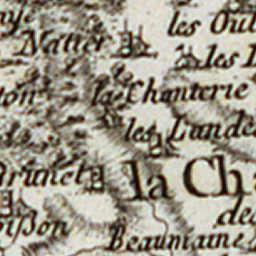 les Oul
Natier
les
la Chanterie
les Lande
Brunet
la Ch
de
isson
Beaumaine